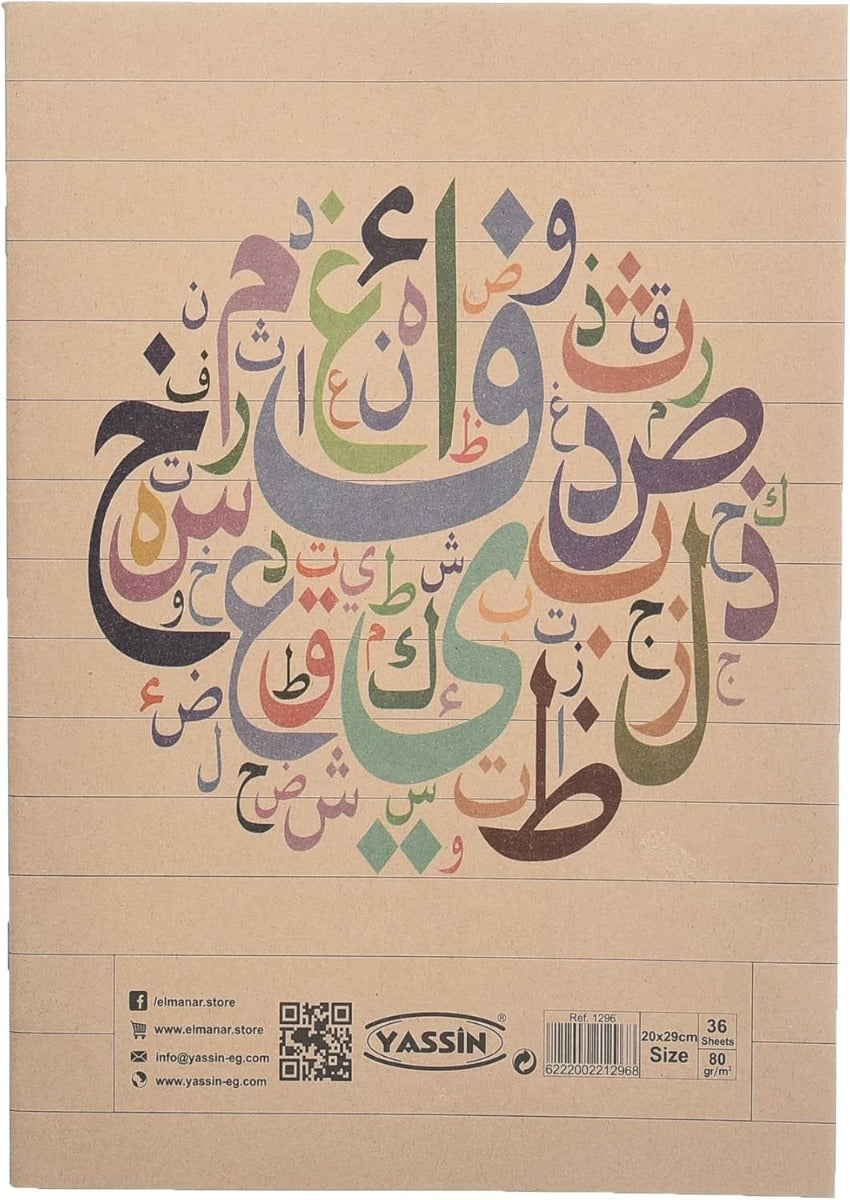 و ا ء غ د
ث ق ذ ف ص ه م ن
ر ن ع ا ث ف خ
ص م د غ ظ ر ت
ك ح ذ ب ش ي ت د س ه
ل ج ب ت ط خ و
ز ز ي ك م ط ق ع
ج ء ض ء
ظ ا ل
ت س ش ض ح
و
/elmanar.store
www.elmanar.store
info@yassin-eg.com
www.yassin-eg.com
YASSÎN®
Ref. 1296
6222002212968
20x29cm
Size
36
Sheets
80
gr/m²